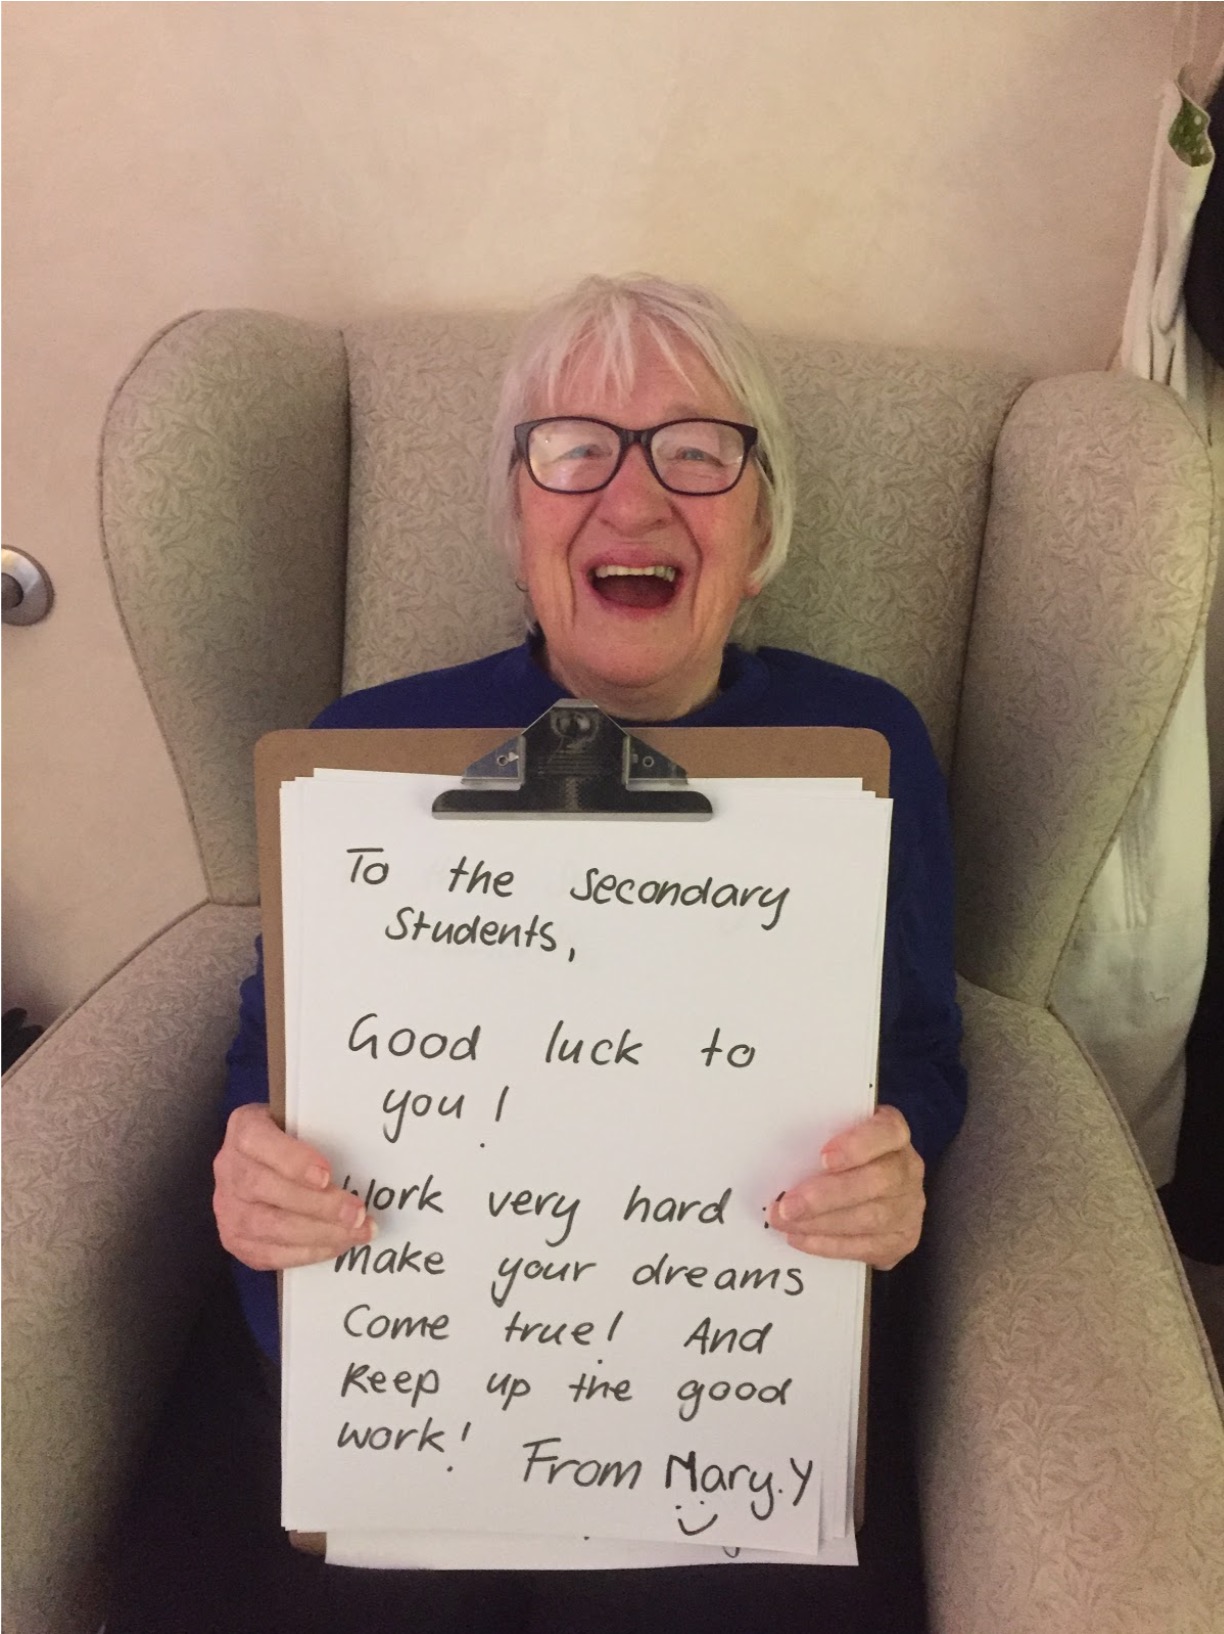 To the Secondary
Students,
Good luck to
you!
Work very hard
make your dreams
Come true! And
Keep up the good
work!
From Mary.Y